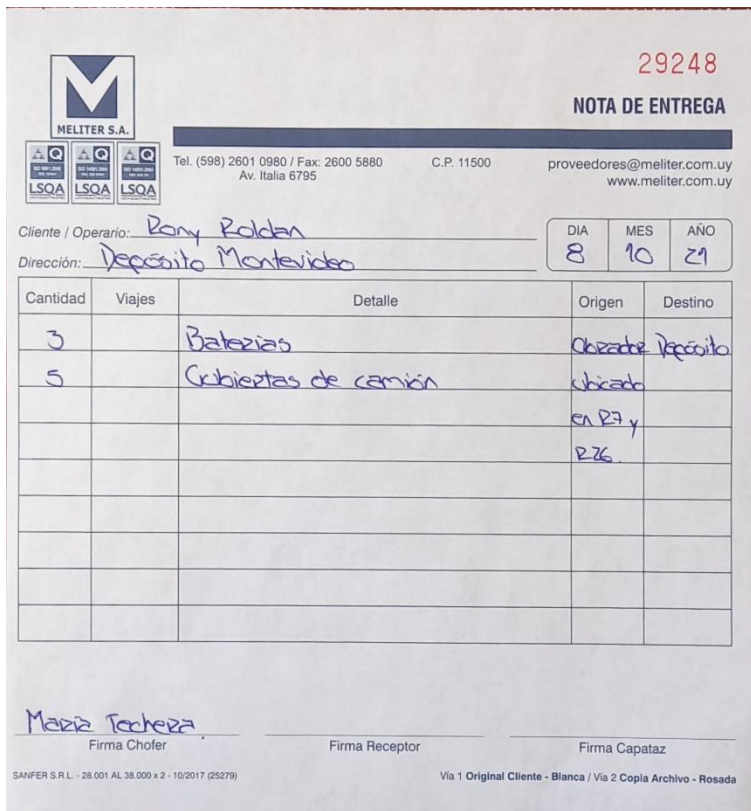 29248
NOTA DE ENTREGA
MELITER S.A.
LSQA LSQA LSQA
Tel. (598) 2601 0980 / Fax: 2600 5880 C.P. 11500 proveedores@meliter.com.uy
Av. Italia 6795 www.meliter.com.uy
Cliente / Operario: Rony Roldan
DIA MES AÑO
Dirección: Depósito Montevideo 8 10 21
Cantidad Viajes Detalle Origen Destino
3 Baterias Obrador Depósito
5 Cubiertas de camión ubicado
en R7 y
R26.
Maria Techera
Firma Chofer Firma Receptor Firma Capataz
SANFER S.R.L. - 28.001 AL 38.000 x 2 - 10/2017 (25279) Vía 1 Original Cliente - Blanca / Vía 2 Copia Archivo - Rosada